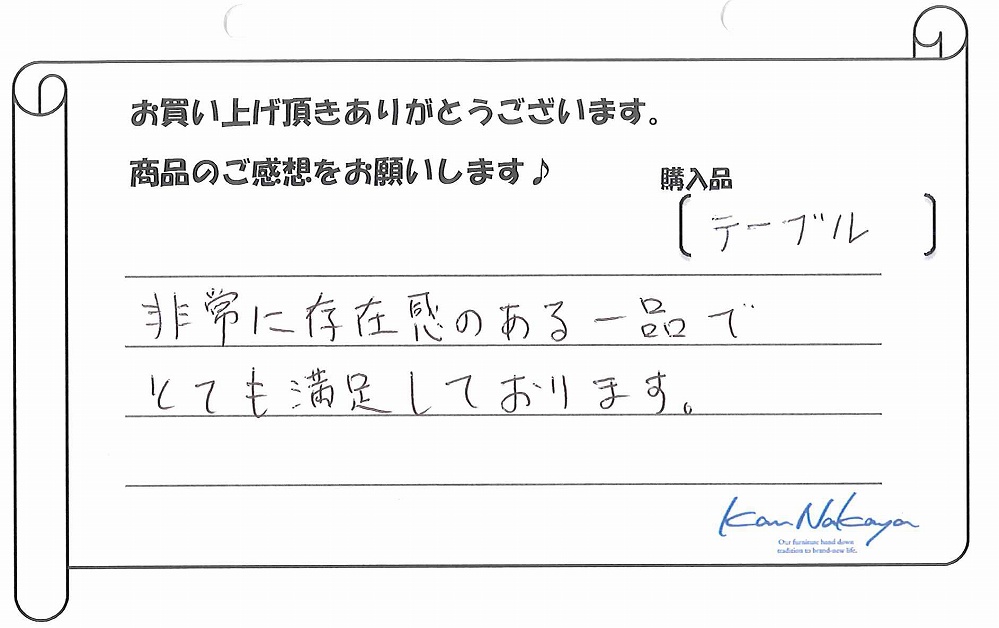 お買い上げ頂きありがとうございます。
商品のご感想をお願いします♪
購入品
〔テーブル〕
非常に存在感のある一品で
とても満足しております。
Kan Nakaya
Our furniture hand down
tradition to brand-new life.